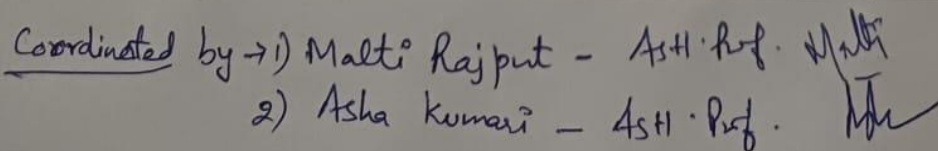 Coordinated by → 1) Malti Rajput - Astt. Prof. Malti
2) Asha Kumari - Astt. Prof.